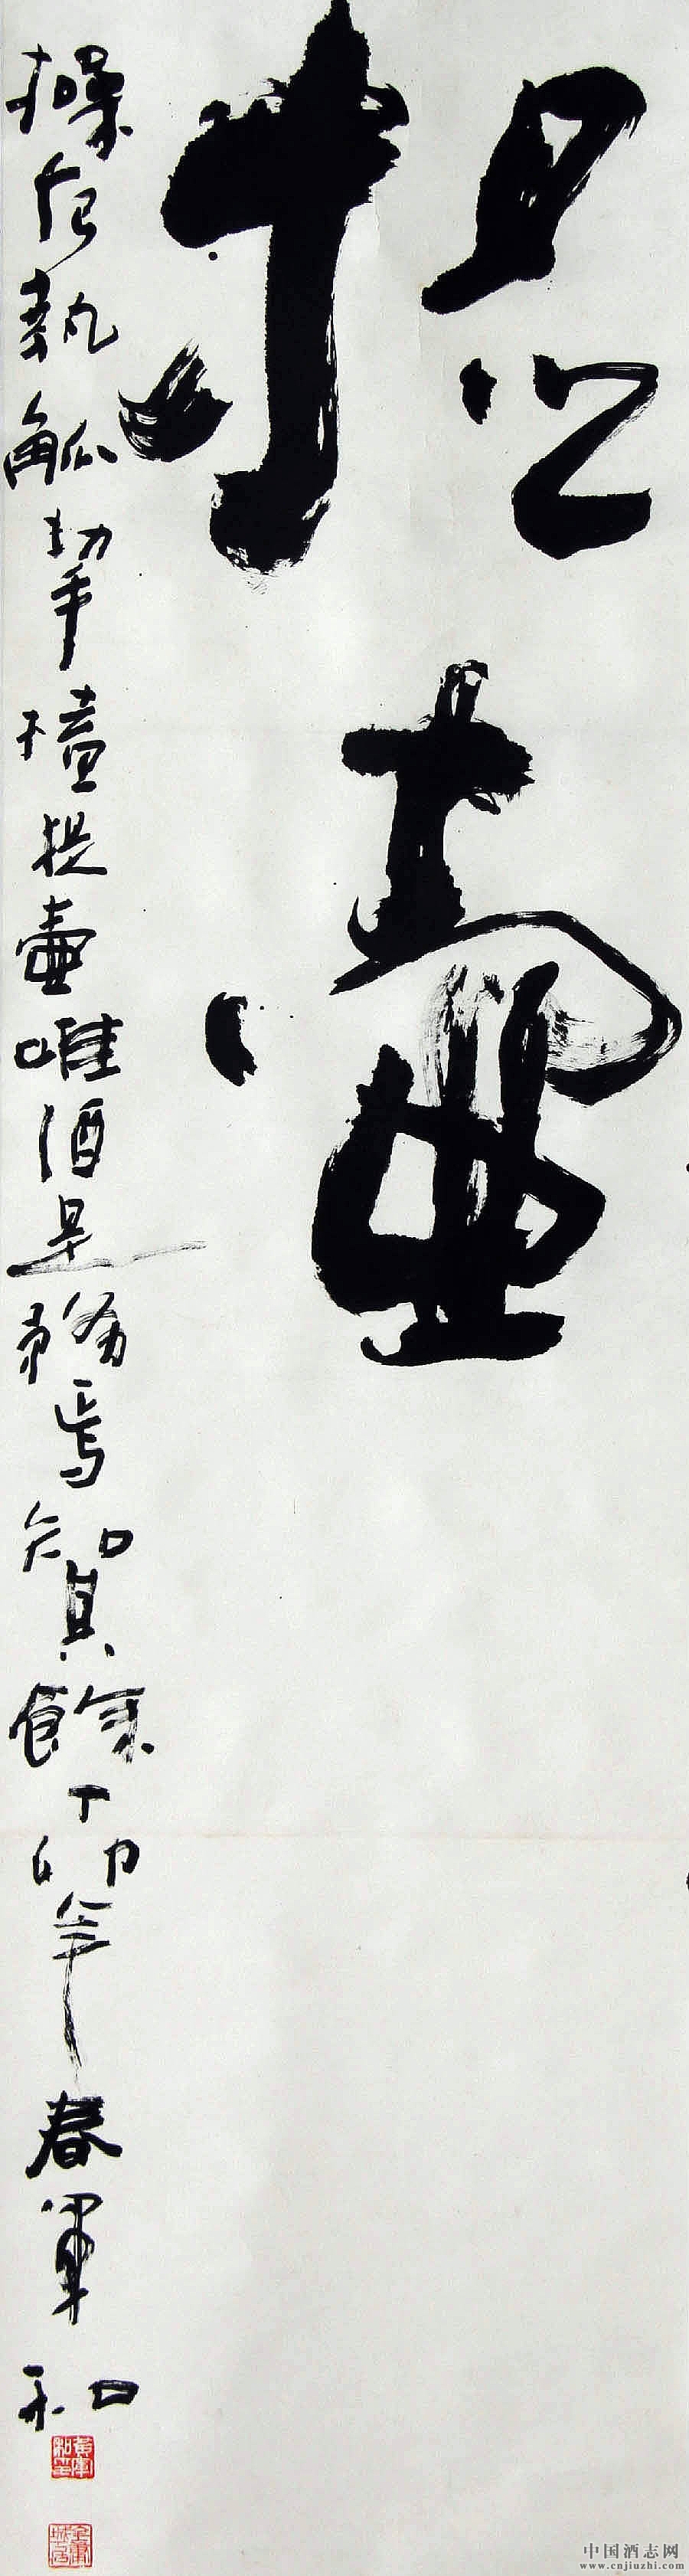 提壶
操卮執觚挈榼提壺唯酒是務焉知其餘丁卯年春軍和
中国酒志网
www.cnjiuzhi.com